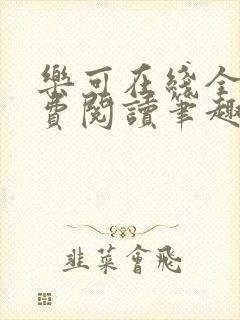 樂可在綫全
費閱讀筆趣
韭菜會飛